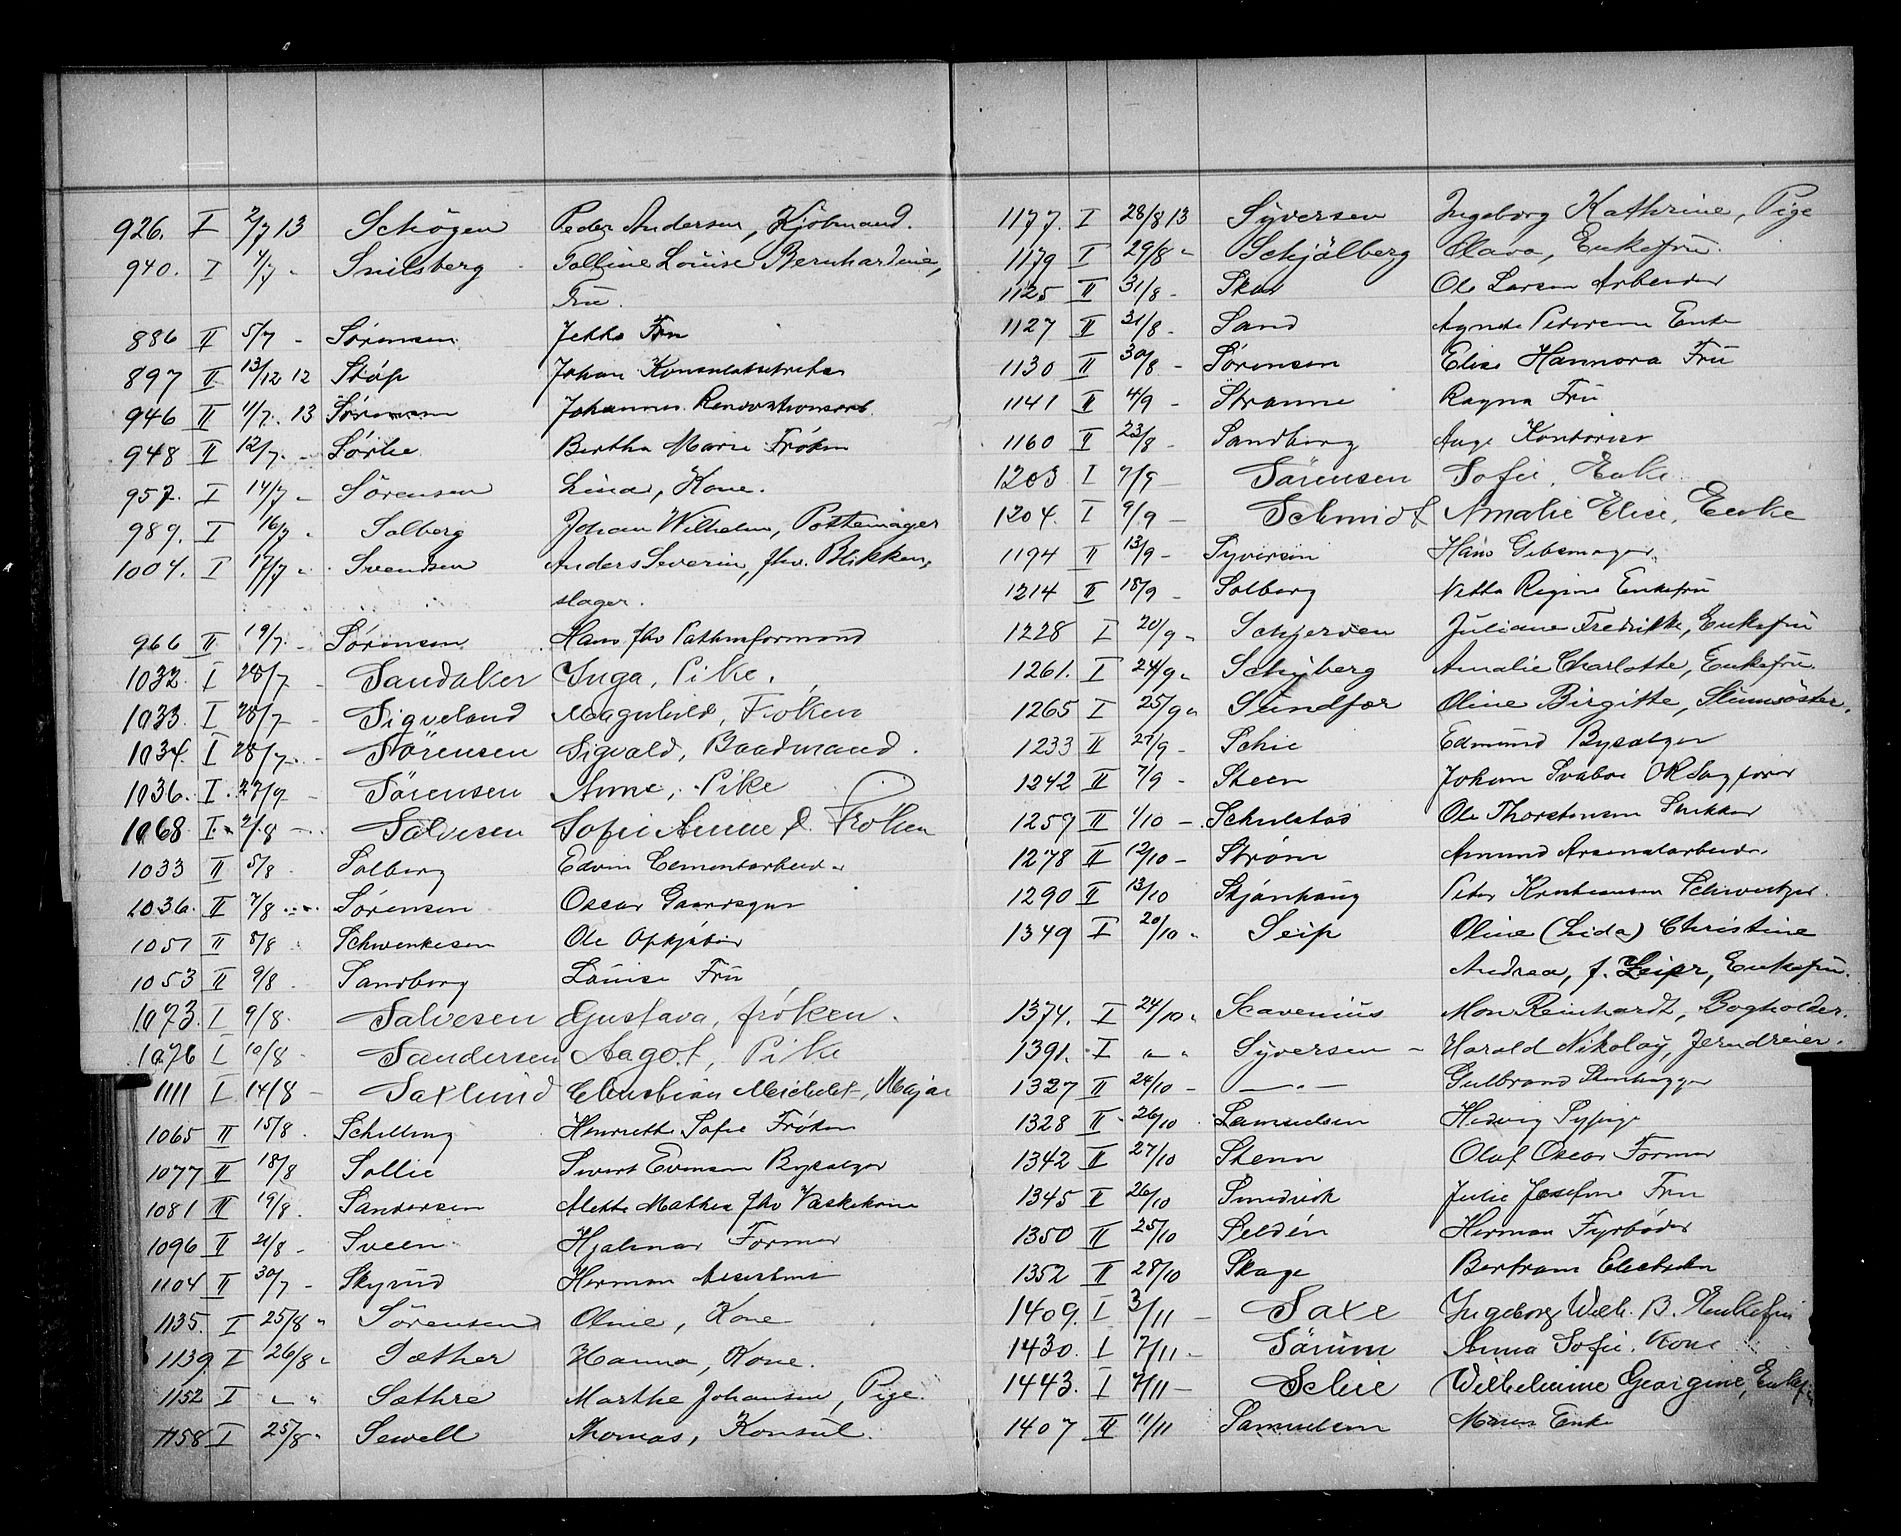 926. I 2/7 13 Schøgen Peder Andersen, Kjøbmand.
940. I 4/7 " Snilsberg Tolline Louise Bernhardine,
Fru.
886 II 5/7 - Sørensen Fru
897 II 13/12 12 Støp Johan
946 II 11/7. 13 Sørensen Johannes Renovationsarb.
948 II 12/7. - Sørlie Bertha Marie Frøken
957. I 14/7 " Sørensen Lina, Kone.
989. I 16/7 " Solberg Johan Wilhelm, Pottemager
1004. I 17/7 " Svendsen Anders Severin, fhv. Blikken-
slager.
966 II 19/7 - Sørensen Hans fhv
1032. I 28/7 - Sandaker Inga, Pike.
1033. I 28/7 - Sigveland Magnhild, Frøken
1034. I 28/7. - Sørensen Sigvald, Baadmand.
1036. I. 27/7 - Sørensen Anne, Pike
1068. I. 2/8 - Salvesen Sofie Amine d. Frøken
1033 II 5/8 . Solberg Edvin Cementarbeid.
1036. II 7/8 . Sørensen Oscar Gaardsgut
1051 II 8/8 " Schwenkesen Ole Opkjøber
1053 II 9/8 . Sandborg Louise Fru
1073. I 9/8. Salvesen Gustava, frøken.
1076 I 10/8 - Sandersen Aagot, Pike
1111 I 14/8 - Saxlund Christian Michelet, Major
1065 II 15/8 . Schilling Henriette Sofie Frøken
1077 II 18/8 Sollie Sivert Evensen Bysælger
1081 II 19/8. Sandersen Alette Mathea fhv Vaskekone
1096 II 21/8 - Sveen Hjalmar Former
1104 II 30/7 - Skyrud Herman
1135. I 25/8 " Sørensen Oline, Kone
1139. I 26/8 " Sæther Hanna, Kone.
1152 I " " Sæthre Marthe Johansen, Pige.
1158 I 25/8 " Sewell Thomas, Konsul.
1177. I 28/8 13 Syversen Ingeborg Kathrine, Pige
1179 I 29/8 " Schjølberg Clara, Enkefru.
1125 II 31/8 - Skar Ole Larsen Arbeider
1127 II 31/8 - Sand Agnete Enke
1130 II 30/8 - Sørensen Elise Hannora Fru
1141 II 4/9 - Stranne Ragna Fru
1160 II 23/8 - Sandberg Aage Kontorist
1203. I 7/9 - Sørensen Sofie, Enke
1204. I 9/9 - Schmidt Amalie Elise, Enke
1194 II 13/9 - Syversen Hans Gibsmager
1214 II 18/9 - Solberg Netta Regine Enkefru
1228 I 20/9 " Schjerven Juliane Fredrikke, Enkefru
1261. I 24/9 " Schyberg Amalie Charlotte, Enkefru.
1265 I 25/9 " Sundfær Oline Birgitte,
1233 II 27/9 - Schie Edmund Bysælger
1242 II 7/9 - Steen Johan Svaboe OR Sagfører
1259 II 1/10 - Schulstad Ole Thorstensen Snekker
1278 II 12/10 - Strøm Amund Arsenalarbeider
1290 II 13/10 Skjønhaug Peter Kristiansen
1349 I 20/10 " Seip Oline (Lida) Christine
Andrea, f. Leier, Enkefru.
1374. I 24/10 " Scavenius Mon Reinhardt, Bogholder.
1391. I " " Syversen - Harald Nikolay, Jerndreier.
1327 II 24/10 - — " — Gulbrand Stenhugger
1328 II 26/10 . Samuelsen Hedvig Sypige
1342 II 27/10 Stenn Olaf Oscar Former
1345 II 26/10 Smedvik Julie Josefine Fru
1350 II 25/10 Seldén Herman Fyrbøder
1352 II 28/10 Skage Bertram
1409. I 3/11 - Saxe Ingeborg Wilh. B. Enkefru
1430. I 7/11 - Sørum Anna Sofie, Kone
1443. I 7/11 - Schie Wilhelmine Georgine, Enkef
1407 II 11/11 Samuelsen Maren Enke